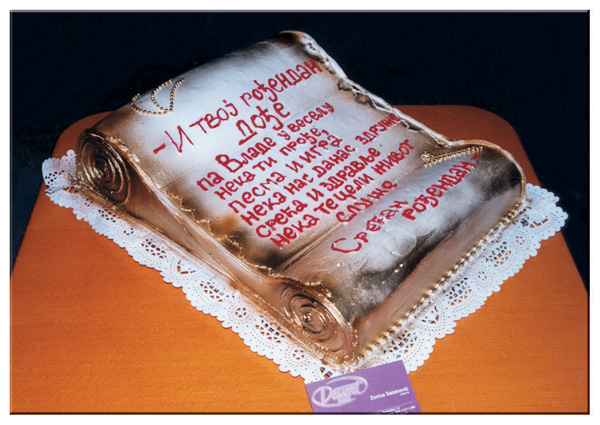 - И твој рођендан
дође
па Владе у веселу
нека ти прође,
песма и игра
нека нас данас здружи
срећа и здравље
нека те цели живот
служе
Срећан
рођендан
Zorica Salaković